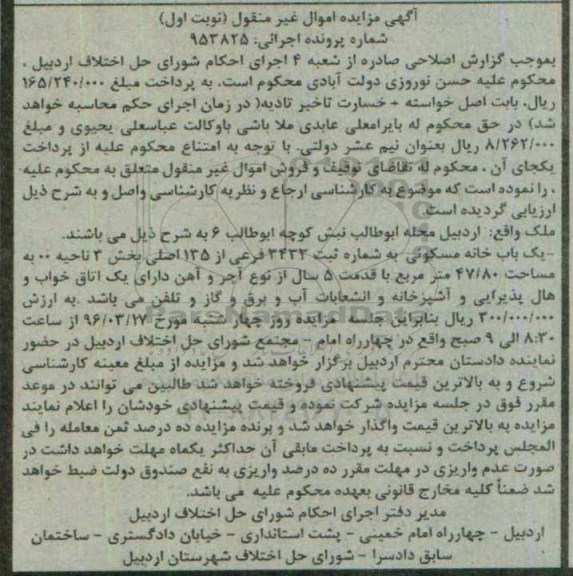 آگهی مزایده اموال غیر منقول (نوبت اول)
شماره پرونده اجرائی: ۹۵۳۸۲۵
بموجب گزارش اصلاحی صادره از شعبه ۴ اجرای احکام شورای حل اختلاف اردبیل ،
محکوم علیه حسن نوروزی دولت آبادی محکوم است. به پرداخت مبلغ ۱۶۵/۲۴۰/۰۰۰
ریال. بابت اصل خواسته + خسارت تاخیر تادیه( در زمان اجرای حکم محاسبه خواهد
شد) در حق محکوم له بایرامعلی عابدی ملا باشی باوکالت عباسعلی یحیوی و مبلغ
۸/۲۶۲/۰۰۰ ریال بعنوان نیم عشر دولتی. با توجه به امتناع محکوم علیه از پرداخت
یکجای آن ، محکوم له تقاضای توقیف و فروش اموال غیر منقول متعلق به محکوم علیه
، را نموده است که موضوع به کارشناسی ارجاع و نظریه کارشناسی واصل و به شرح ذیل
ارزیابی گردیده است.
ملک واقع: اردبیل محله ابوطالب نبش کوچه ابوطالب ۶ به شرح ذیل می باشند.
-یک باب خانه مسکونی به شماره ثبت ۳۴۳۲ فرعی از ۱۳۵ اصلی بخش ۳ ناحیه ۰۰ به
مساحت ۴۷/۸۰ متر مربع با قدمت ۵ سال از نوع آجر و آهن دارای یک اتاق خواب و
هال پذیرایی و آشپزخانه و انشعابات آب و برق و گاز و تلفن می باشد .به ارزش
۳۰۰/۰۰۰/۰۰۰ ریال بنابراین جلسه مزایده روز چهار شنبه مورخ ۹۶/۰۳/۲۷ از ساعت
۸:۳۰ الی ۹ صبح واقع در چهارراه امام - مجتمع شورای حل اختلاف اردبیل در حضور
نماینده دادستان محترم اردبیل برگزار خواهد شد و مزایده از مبلغ معینه کارشناسی
شروع و به بالاترین قیمت پیشنهادی فروخته خواهد شد طالبین می توانند در موعد
مقرر فوق در جلسه مزایده شرکت نموده و قیمت پیشنهادی خودشان را اعلام نمایند
مزایده به بالاترین قیمت واگذار خواهد شد و برنده مزایده ده درصد ثمن معامله را فی
المجلس پرداخت و نسبت به پرداخت مابقی آن حداکثر یکماه مهلت خواهد داشت در
صورت عدم واریزی در مهلت مقرر ده درصد واریزی به نفع صندوق دولت ضبط خواهد
شد ضمناً کلیه مخارج قانونی بعهده محکوم علیه می باشد.
مدیر دفتر اجرای احکام شورای حل اختلاف اردبیل
اردبیل - چهارراه امام خمینی - پشت استانداری - خیابان دادگستری - ساختمان
سابق دادسرا - شورای حل اختلاف شهرستان اردبیل